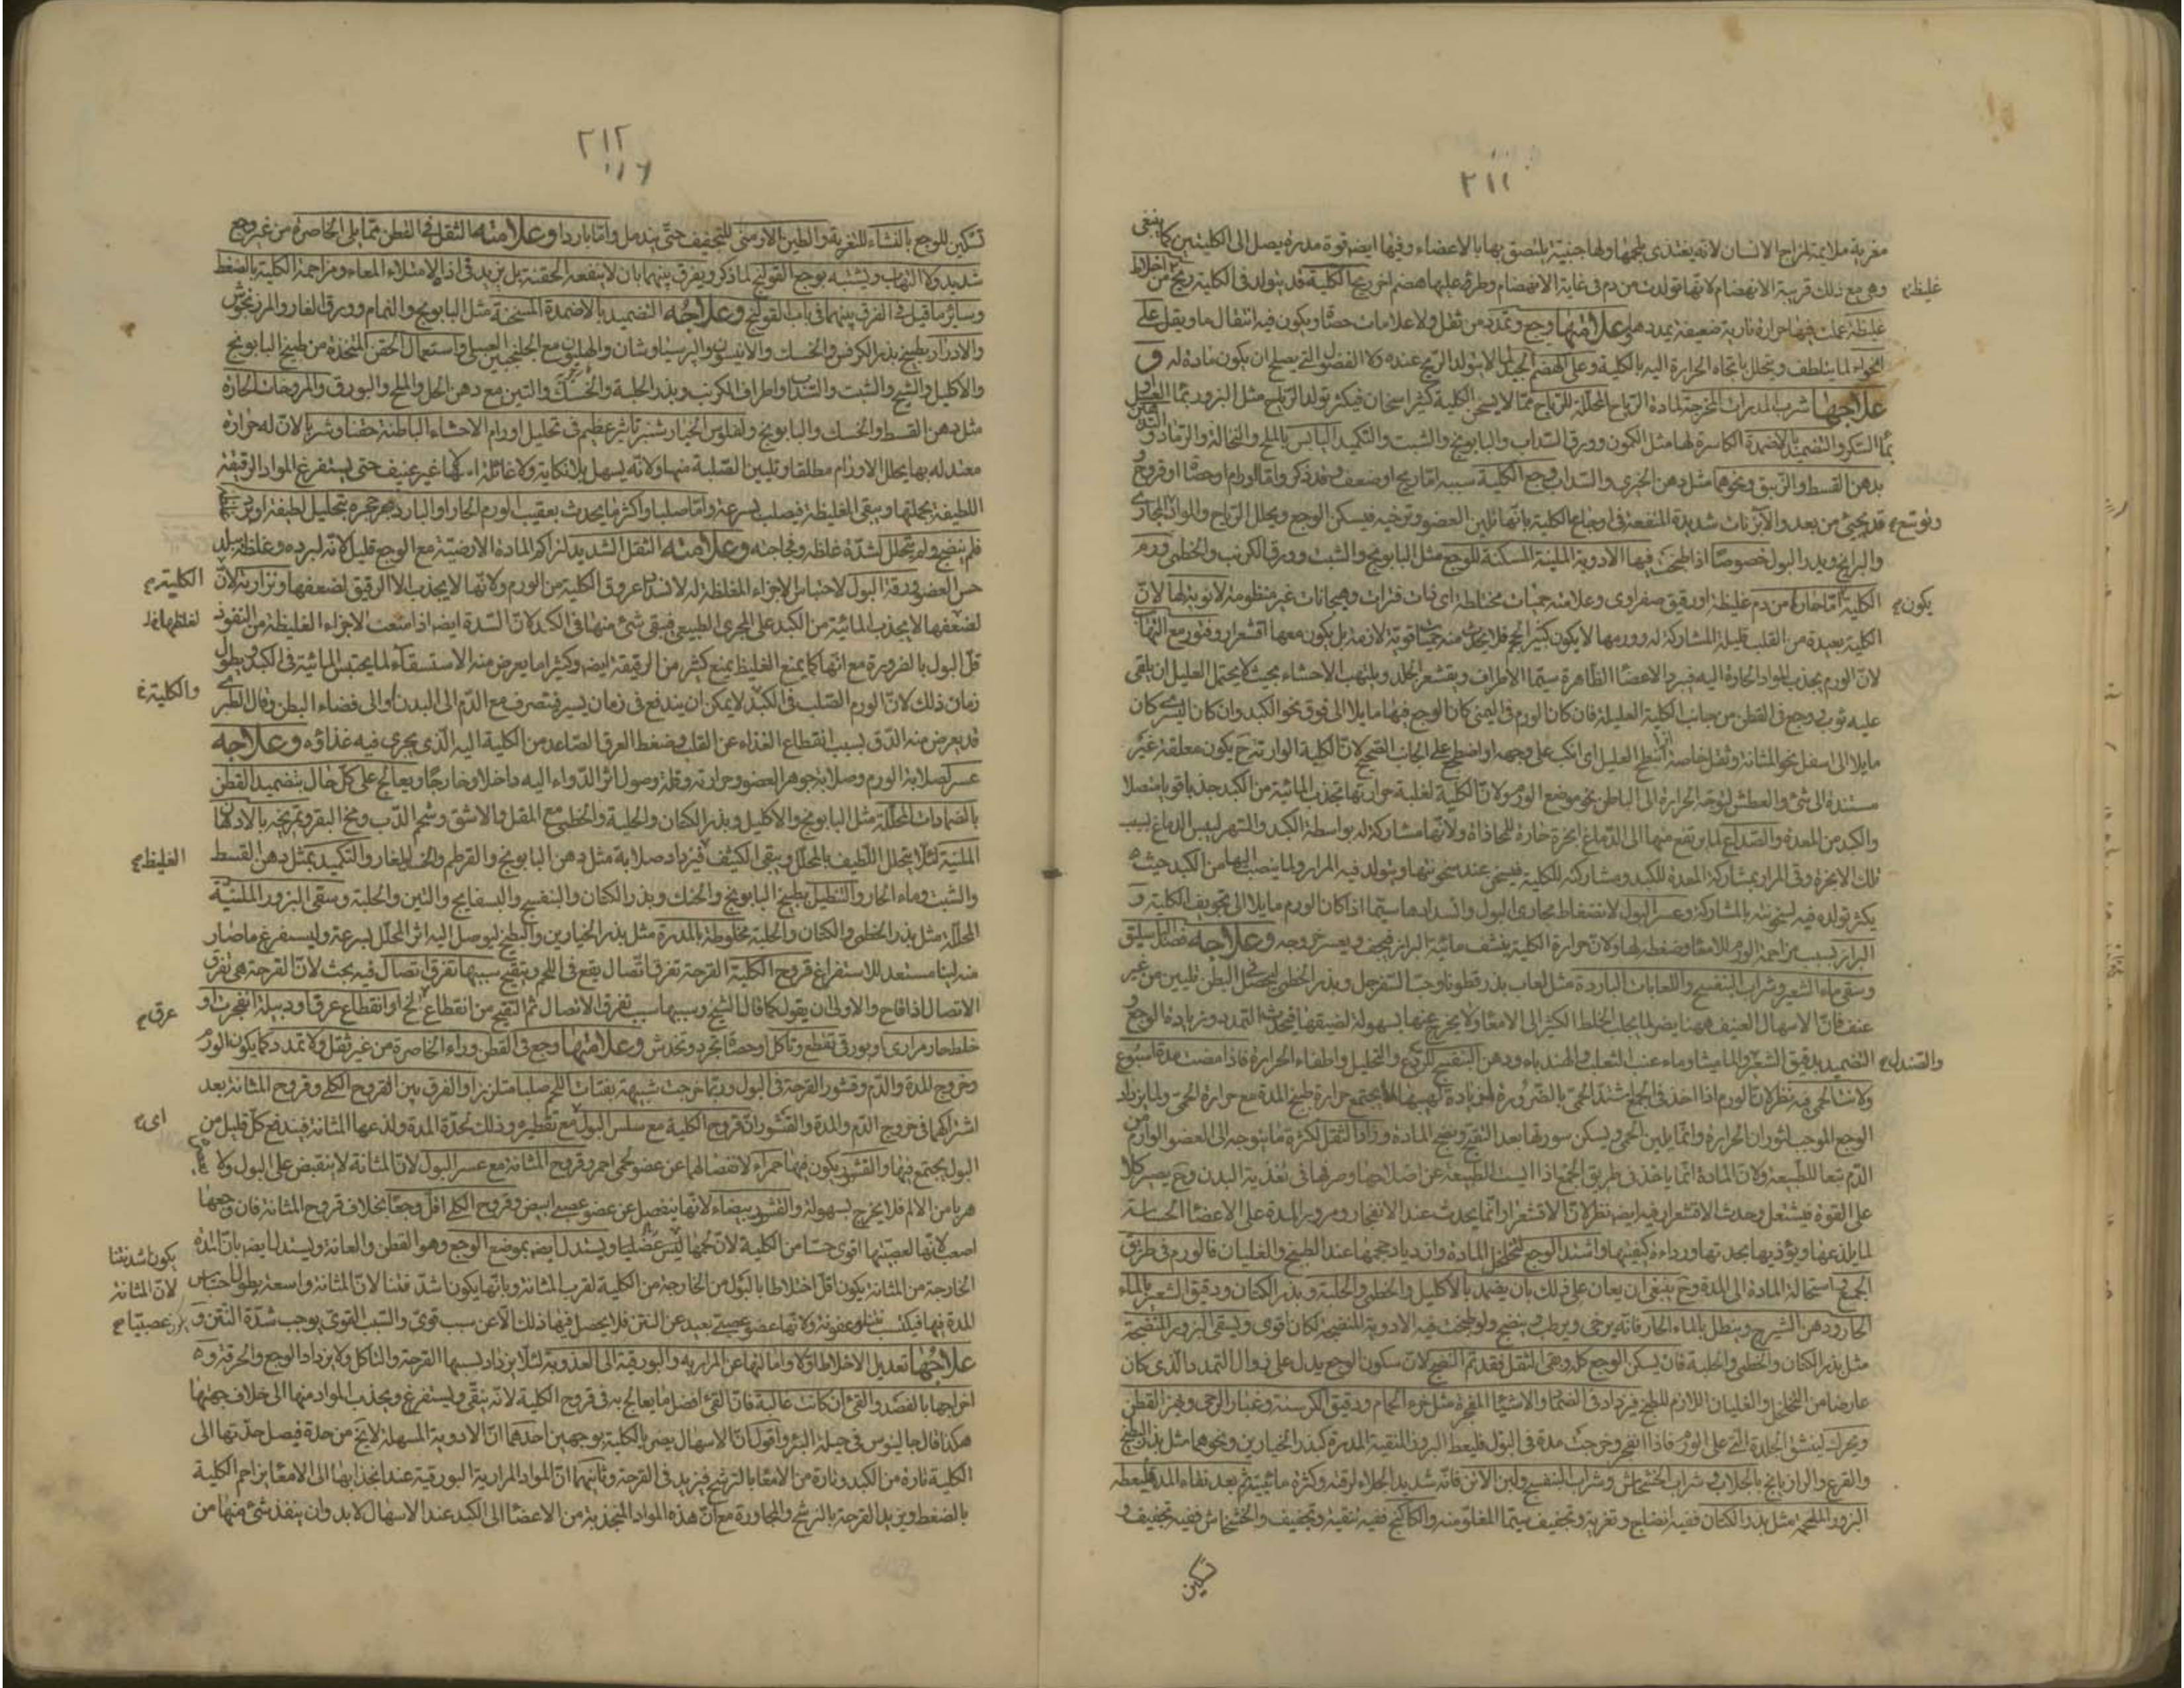 ٢١١
مغرية ملايمة لمزاج الانسان لانه يغتذى بلحمها ولها جنبية يلتصق بها بالاعضاء وفيها ايضا قوة مدرة يصل الى الكليتين كما ينبغى
وهى مع ذلك قريبة الانهضام لانها تولدت من دم فى غاية الانهضام وطرء عليها هضم اخر ريح الكلية قد يتولد فى الكلية ريح من اخلاط
غليظة
غليظة عملت فيها حرارة نارية ضعيفة يمددها وعلامتها وجع وتمدد من ثقل ولا علامات حصاة ويكون فيه انتقال ما ويقل على
الخواء لما يتلطف ويتحلل باتجاه الحرارة اليه بالكلية وعلى الهضم الجيد لما لا يتولد الريح عنده ولا الفضول التى يصلح ان يكون مادة له و
علاجها شرب المدرات المخرجة لمادة الرياح المحللة للرياح مما لا يسخن الكلية كثير اسخان فيكثر تولد الرياح مثل البزور بماء العسل او
بماء السكر والتضميد بالاضمدة الكاسرة لها مثل الكمون وورق السداب والبابونج والشبت والتكميد اليابس بالملح والنخالة والرماد و
بدهن القسط والزنبق ونحوهما مثل دهن الخيرى والسداب وجع الكلية سببه اما ريح او ضعف وقد ذكر واما اورام او حصاة او قروح
وتوسع
قد يجئ من بعد والآبزنات شديدة المنفعة فى اوجاع الكلية بانها تلين العضو وترخيه فيسكن الوجع ويحلل الرياح والمواد المجارى
والبرايخ ويدر البول خصوصا اذا طبخت فيها الادوية الملينة المسكنة للوجع مثل البابونج والشبت وورق الكرنب والخطمى ورم
يكون
الكلية اما حار من دم غليظ او رقيق صفراوى وعلامته حميات مختلطة اى ذات فترات وهيجانات غير منظومة لا نوبة لها لان
الكلية بعيدة من القلب قليلة المشاركة له وورمها لا يكون كثير الحجم فلا يحدث منه حميات قوية لازمة بل يكون معها اقشعرار وفتور مع التهاب
لان الورم يجذب المواد الحارة اليه فيبرد الاعضاء الظاهرة سيما الاطراف ويقشعر الجلد ويلتهب الاحشاء بحيث لا يحتمل العليل ان يلقى
عليه ثوب ووجع فى القطن من جانب الكلية العليلة فان كان الورم فى اليمنى كان الوجع فيها مايلا الى فوق نحو الكبد وان كان اليسرى كان
مايلا الى اسفل نحو المثانة وثقل خاصة اذا انبطح العليل اى انكب على وجهه او اضطجع على الجانب الصحيح لان الكلية الوارمة ح يكون معلقة غير
مستندة الى شئ والعطش لتوجه الحرارة الى الباطن نحو موضع الورم ولان الكلية لغلبة حرارتها تجذب المائية من الكبد جذبا قويا متصلا
والكبد من المعدة والصداع لما يرتفع منها الى الدماغ ابخرة حارة للمحاذاة ولانها مشاركة له بواسطة الكبد والسهر ليبس الدماغ بسبب
تلك الابخرة وقئ المرار بمشاركة المعدة للكبد ومشاركته للكلية فيسخن عند سخونتها ويتولد فيه المرار ولما ينصب اليها من الكبد حيث
يكثر تولده فيه لسخونته بالمشاركة وعسر البول لانضغاط مجارى البول وانسدادها سيما اذا كان الورم مايلا الى تجويف الكلية و
البراز بسبب مزاحمة الورم للامعاء وضغطه لها ولان حرارة الكلية ينشف مائية البراز فيجف ويعسر خروجه وعلاجه فصد الباسليق
وسقى ماء الشعير وشراب البنفسج واللعابات الباردة مثل لعاب بذر قطونا وحب السفرجل وبذر الخطمى ليحصل للبطن تليين من غير
عنف فان الاسهال العنيف ههنا يضر لما يجلب الخلط الكثير الى الامعاء ولا يخرج عنها بسهولة لضيقها فيحدث التمدد وزيادة الوجع و
والصندل
التضميد بدقيق الشعير والماميثا وماء عنب الثعلب والهندباء ودهن البنفسج للردع والتحليل واطفاء الحرارة فاذا مضت مدة اسبوع
ولانت الحمى فيه نظر لان الورم اذا اخذ فى الجمع اشتد الحمى بالضرورة لزيادة لهيبها لما يجتمع حرارة طبخ المدة مع حرارة الحمى ولما يزداد
الوجع الموجب لثوران الحرارة وانما يلين الحمى ويسكن سورتها بعد التقيح ونضج المادة وزاد الثقل لكثرة ما يتوجه الى العضو الوارم من
الدم تبعا للطبيعة ولان المادة انما ياخذ فى طريق الجمع اذا ايست الطبيعة عن اصلاحها وصرفها فى تغذية البدن وح يصير كلا
على القوة فيشتعل وحدث الاقشعرار فيه ايضا نظر لان الاقشعرار انما يحدث عند الانفجار ومرور المدة على الاعضاء الحساسة
لما يلذعها ويؤذيها بحدتها ورداءة كيفيتها واشتد الوجع لتخلخل المادة وازدياد حجمها عند الطبخ والغليان فالورم فى طريق
الجمع واستحالة المادة الى المدة وح ينبغى ان يعان على ذلك بان يضمد بالاكليل والخطمى والحلبة وبذر الكتان ودقيق الشعير بالماء
الحار ودهن الشيرج وينطل بالماء الحار فانه يرخى ويرطب وينضج ولو طبخت فيه الادوية المنضجة لكان اقوى ويسقى البزور المنضجة
مثل بذر الكتان والخطمى والحلبة فان يسكن الوجع كله وبقى الثقل فقد تم النضج لان سكون الوجع يدل على زوال التمدد الذى كان
عارضا من التخلخل والغليان اللازم للطبخ فيزداد فى الضماد الاشياء المفجرة مثل خرء الحمام ودقيق الكرسنة وغبار الرحى ويهز القطن
ويحرك لينشق الجلدة التى على الورم فاذا انفجر وخرجت مدة فى البول فليعط البزور المنقية المدرة كبذر الخيارين ونحوهما مثل بذر البطيخ
والقرع والرازيانج بالجلاب وشراب الخشخاش وشراب البنفسج ولبن الاتن فانه شديد الجلاء لرقته وكثرة مائيته ثم بعد نقاء المدة فليعطه
البزور الملحمة مثل بذر الكتان ففيه انضاج وتغرية وتجفيف سيما المقلو منه والكاكنج ففيه تنقية وتجفيف والخشخاش ففيه تجفيف و
تسكين
٢١٢
١١٦
تسكين للوجع بالنشاء للتغرية والطين الارمنى للتجفيف حتى يندمل واما بارد وعلامته الثقل فى القطن مما يلى الخاصرة من غير وجع
شديد ولا التهاب ويشتبه بوجع القولنج لما ذكر ويفرق بينهما بان لا ينفعه الحقنة بل يزيد فى اذاه لامتلاء المعاء ومزاحمة الكلية بالضغط
وساير ما قيل فى الفرق بينهما فى باب القولنج وعلاجه التضميد بالاضمدة المسخنة مثل البابونج والنمام وورق الغار والمرزنجوش
والادرار بطبيخ بذر الكرفس والخسك والانيسون والبرسياوشان والهليون مع الجلنجبين العسلى واستعمال الحقن المتخذة من طبيخ البابونج
والاكليل والشيح والشبت والسداب واطراف الكرنب وبذر الحلبة والخسك والتين مع دهن الحل والملح والبورق والمروخات الحارة
مثل دهن القسط والخسك والبابونج ولفلوس الخيارشنبر تاثير عظيم فى تحليل اورام الاحشاء الباطنة حقنا وشربا لان له حرارة
معتدلة بها يحلل الاورام مطلقا وتليين الصلبة منها ولانه يسهل بلا نكاية ولا غائلة اسهالا غير عنيف حتى يستفرغ المواد الرقيقة
اللطيفة بجملتها ويبقى الغليظة فيصلب بسرعة واما صلبا واكثر ما يحدث بعقيب الورم الحار او البارد
فلم ينضج ولم يتحلل لشدة غلظه وفجاجته وعلامته الثقل الشديد لتراكم المادة الارضية مع الوجع قليل لانه لبرده وغلظه يبلد
حس العضو ورقة البول لاحتباس الاجزاء المغلظة له لانسداد عروق الكلية من الورم ولانها لا يجذب الا الرقيق لضعفها ونزارته لان
الكلية
لضعفها لا يجذب المائية من الكبد على المجرى الطبيعى فيبقى شئ منها فى الكبد لان السدة ايضا اذا منعت الاجزاء الغليظة من النفوذ
لغلظها
قل البول بالضرورة مع انها كما يمنع الغليظ يمنع كثير من الرقيقة ايضا وكثيرا ما يعرض منه الاستسقاء لما يحتبس المائية فى الكبد ويطول
زمان ذلك لان الورم الصلب فى الكبد لا يمكن ان يندفع فى زمان يسير فيتصرف مع الدم الى البدن او الى فضاء البطن وقال الطبرى
والكلية
قد يعرض منه الدق بسبب انقطاع الغذاء عن القلب وضغط العرق الصاعد من الكلية اليه الذى يجرى فيه غذاؤه وعلاجه
عسر لصلابة الورم وصلابة جوهر العضو وحرارته وقلة وصول اثر الدواء اليه داخلا وخارجا ويعالج على كل حال بتضميد القطن
بالضمادات المحللة مثل البابونج والاكليل وبذر الكتان والحلبة والخطمى مع المقل والاشق وشحم الدب ومخ البقر وتمريخه بالادهان
الملينة لئلا يتحلل اللطيف بالمحلل ويبقى الكثيف فيزداد صلابة مثل دهن البابونج والقرطم والخسك والغار والتكميد بمثل دهن القسط
الغليظ
والشبت وماء الحار والتنطيل بطبيخ البابونج والخسك وبذر الكتان والبنفسج والبسفايج والتين والحلبة وسقى البزور الملينة
المحللة مثل بذر الخطمى والكتان والحلبة مخلوطة بالمدرة مثل بذر الخيارين والبطيخ ليوصل اليه اثر المحلل بسرعة وليستفرغ ما صار
منه لينا مستعد للاستفراغ قروح الكلية القرحة تفرق اتصال يقع فى اللحم ويتقيح سببها تفرق اتصال فيه بحث لان القرحة هى تفرق
الاتصال اذا قاح والاولى ان يقول كما قال الشيخ وسببها سبب تفرق الاتصال ثم التقيح من انقطاع لح او انقطاع عرق او دبيلة انفجرت او
عرق
خلط حاد مرارى او بورقى تقطع وتاكل او حصاة تجرد وتخدش وعلامتها وجع فى القطن وراء الخاصرة من غير ثقل ولا تمدد كما يكون الورم
وخروج المدة والدم وقشور القرحة فى البول وربما خرجت شبيهة بفتات اللحم صلبا متلززا والفرق بين القروح الكلى وقروح المثانة بعد
اشتراكهما فى خروج الدم والمدة والقشور ان قروح الكلية مع سلس البول مع تقطيره وذلك لحدة المدة ولذعها المثانة فيندفع كل قليل من
اى
البول يجتمع فيها والقشور يكون فيها حمراء لانفصالها عن عضو لحمى احمر وقروح المثانة مع عسر البول لان المثانة لا ينقبض على البول ولا
هربا من الالم فلا يخرج بسهولة والقشور بيضاء لانها ينفصل عن عضو عصبى ابيض وقروح الكلى اقل وجعا بخلاف قروح المثانة فان وجعها
اصعب لانها لعصبيتها اقوى حسا من الكلية لان لحمها ليس عضليا ويستدل ايضا بموضع الوجع وهو القطن والعانة ويستدل ايضا بان المدة
يكون اشد نتنا
الخارجة من المثانة يكون اقل اختلاطا بالبول من الخارجة من الكلية لقرب المثانة وبانها يكون اشد نتنا لان المثانة واسعة يطول احتباس
لان المثانة
المدة فيها فيكتسب عفونة ولانها عضو عصبى بعيد عن النتن فلا يحصل فيها ذلك الا عن سبب قوى والسبب القوى يوجب شدة النتن و
عصبية
علاجها تعديل الاخلاط اولا وامالتها عن المرارية والبورقية الى العذوبة لئلا يزداد بسببها القرحة والتاكل ولا يزداد الوجع والحرقة و
اخراجها بالفصد والقئ ان كانت غالبة فان القئ افضل ما يعالج به فى قروح الكلية لانه ينقى ويستفرغ ويجذب المواد منها الى خلاف جهتها
هكذا قال جالينوس فى حيلة البرء واقول ان الاسهال يضر بالكلية بوجهين احدهما ان الادوية المسهلة لا يخ من حدة فيصل حدتها الى
الكلية تارة من الكبد وتارة من الامعاء بالترشح فيزيد فى القرحة وثانيهما ان المواد المرارية البورقية عند انجذابها الى الامعاء يزاحم الكلية
بالضغط ويزيد القرحة بالترشح والمجاورة مع ان هذه المواد المنجذبة من الاعضاء الى الكبد عند الاسهال لا بد وان ينفذ شئ منها من